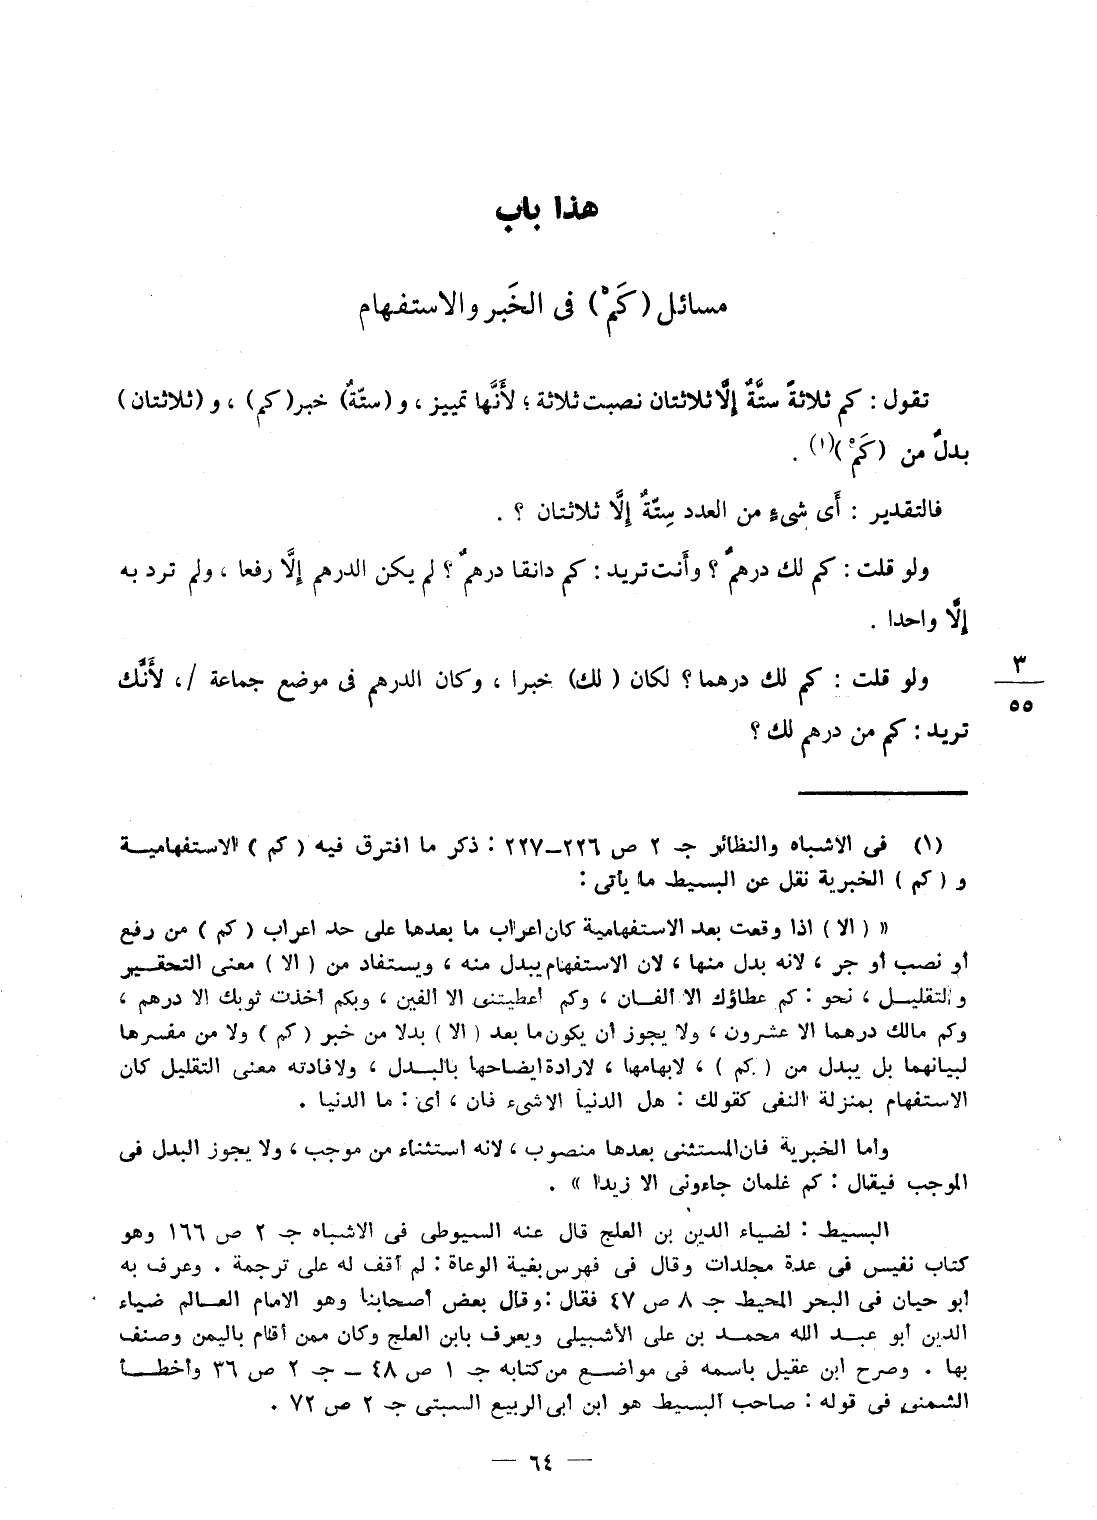 هذا باب
مسائل (كَمْ) فى الخَبر والاستفهام
تقول : كم ثلاثةً ستَّةٌ إلَّا ثلاثتان نصبت ثلاثة ؛ لأَنَّها تمييز ، و (ستّةٌ) خبر (كم) ، و (ثلاثتان)
بدلٌ من (كَمْ)(١) .
فالتقدير : أَى شىءٍ من العدد سِتّةٌ إلَّا ثلاثتان ؟ .
ولو قلت : كم لك درهمٌ ؟ وأَنت تريد : كم دانقا درهمٌ ؟ لم يكن الدرهم إلَّا رفعا ، ولم ترد به
إلَّا واحدا .
ولو قلت : كم لك درهما ؟ لكان (لك) خبرا ، وكان الدرهم فى موضع جماعة /، لأَنَّك
٣
٥٥
تريد : كم من درهم لك ؟
(١) فى الاشباه والنظائر جـ ٢ ص ٢٢٦–٢٢٧ : ذكر ما افترق فيه ( كم ) الاستفهامية
و ( كم ) الخبرية نقل عن البسيط ما يأتى :
« ( الا ) اذا وقعت بعد الاستفهامية كان اعراب ما بعدها على حد اعراب ( كم ) من رفع
أو نصب أو جر ، لانه بدل منها ، لان الاستفهام يبدل منه ، ويستفاد من ( الا ) معنى التحقير
والتقليل ، نحو : كم عطاؤك الا ألفان ، وكم أعطيتنى الا ألفين ، وبكم أخذت ثوبك الا درهم ،
وكم مالك درهما الا عشرون ، ولا يجوز أن يكون ما بعد ( الا ) بدلا من خبر ( كم ) ولا من مفسرها
لبيانهما بل يبدل من ( كم ) ، لابهامها ، لارادة ايضاحها بالبدل ، ولافادته معنى التقليل كان
الاستفهام بمنزلة النفى كقولك : هل الدنيا الا شىء فان ، أى : ما الدنيا .
وأما الخبرية فان المستثنى بعدها منصوب ، لانه استثناء من موجب ، ولا يجوز البدل فى
الموجب فيقال : كم غلمان جاءونى الا زيدا » .
البسيط : لضياء الدين بن العلج قال عنه السيوطى فى الاشباه جـ ٢ ص ١٦٦ وهو
كتاب نفيس فى عدة مجلدات وقال فى فهرس بغية الوعاة : لم أقف له على ترجمة . وعرف به
أبو حيان فى البحر المحيط جـ ٨ ص ٤٧ فقال : وقال بعض أصحابنا وهو الامام العالم ضياء
الدين أبو عبد الله محمد بن على الأشبيلى ويعرف بابن العلج وكان ممن أقام باليمن وصنف
بها . وصرح ابن عقيل باسمه فى مواضع من كتابه جـ ١ ص ٤٨ – جـ ٢ ص ٣٦ وأخطأ
الشمنى فى قوله : صاحب البسيط هو ابن أبى الربيع السبتى جـ ٢ ص ٧٢ .
— ٦٤ —